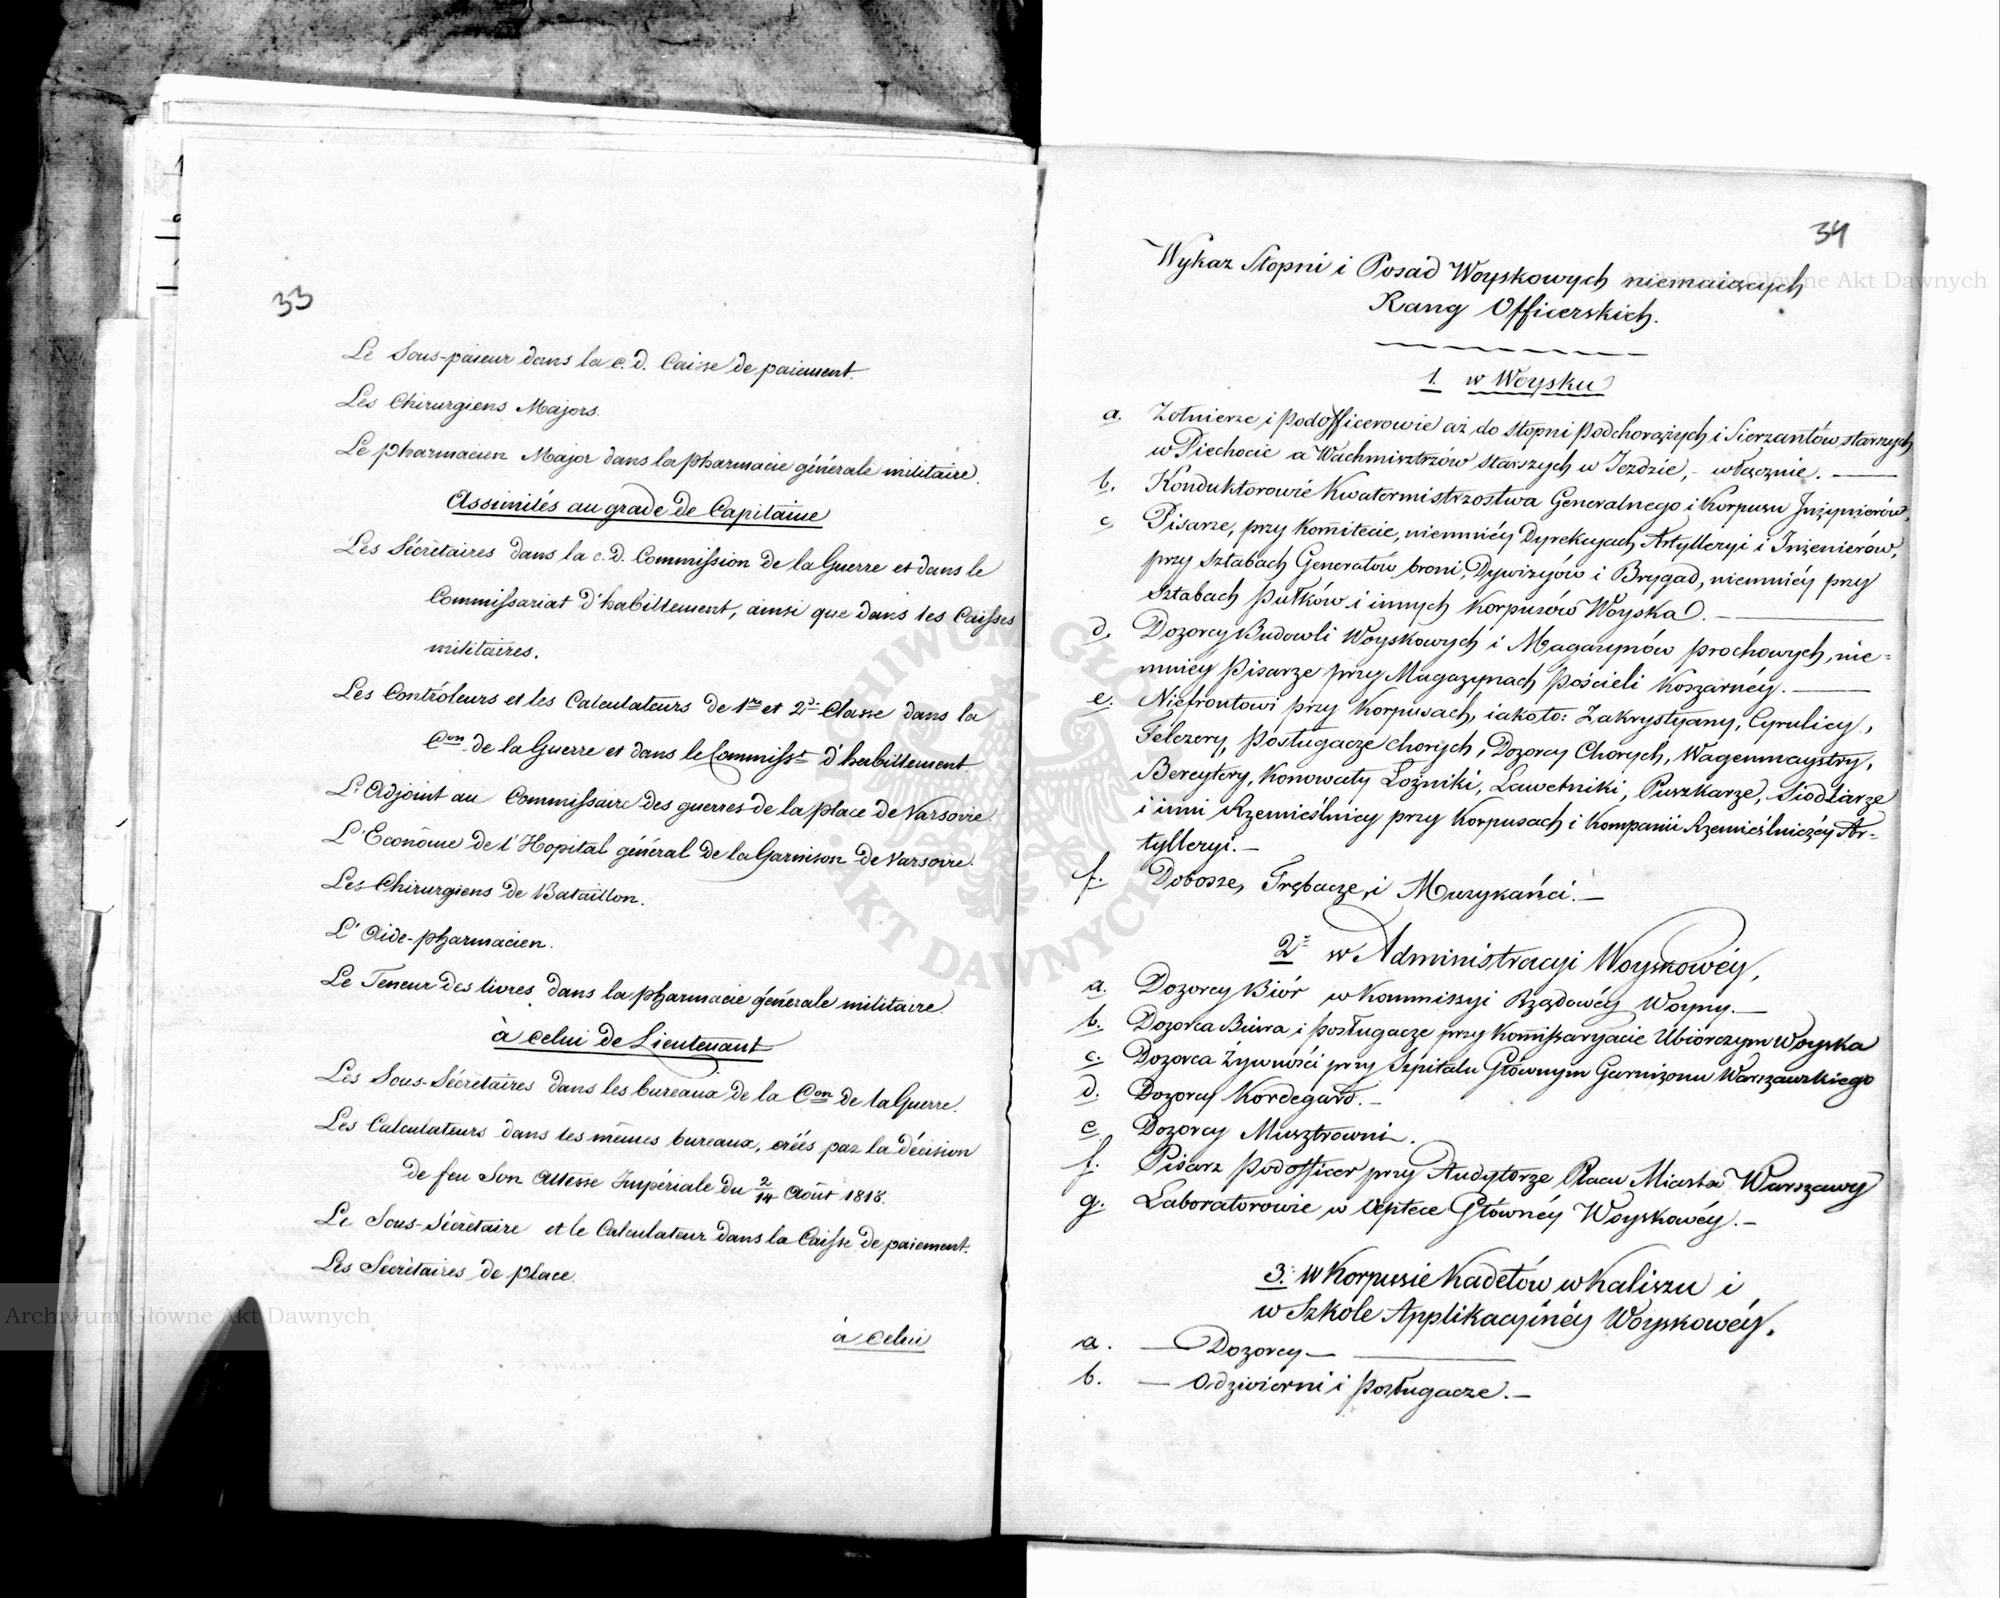 33
Le Sous-païeur dans la c. d. Caisse de païement.
Les Chirurgiens Majors.
Le pharmacien Major dans la pharmacie générale militaire.
Assimilés au grade de Capitaine
Les Sécrètaires dans la c. d. Commission de la Guerre et dans le
Commissariat d'habillement, ainsi que dans les Caisses
militaires.
Les Contrôleurs et les Calculateurs de 1re et 2de Classe dans la
Con de la Guerre et dans le Commisst d'habillement.
L'Adjoint au Commissaire des guerres de la place de Varsovie.
L'Econôme de l'Hopital général de la Garnison de Varsovie.
Les Chirurgiens de Bataillon.
L'Aide-pharmacien.
Le Teneur des livres dans la pharmacie générale militaire.
à celui de Lieutenant
Les Sous-Sécrètaires dans les bureaux de la Con de la Guerre.
Les Calculateurs dans les mêmes bureaux, créés par la décision
de feu Son Altesse Impériale du 2/14 Août 1818.
Le Sous-Sécrètaire et le Calculateur dans la Caisse de païement.
Les Secrètaires de place.
à celui
34
Wykaz Stopni i Posad Woyskowych niemaiących
Rang Officerskich.
1. w Woysku
a. Żołnierze i Podofficerowie aż do stopni Podchorążych i Sierzantów starszych
w Piechocie a Wachmistrzów starszych w Jezdzie, włącznie.
b. Konduktorowie Kwatermistrzostwa Generalnego i Korpusu Inżynierów.
c. Pisarze, przy Komitecie, niemniéy Dyrekcyach Artylleryi i Inżenierów,
przy Sztabach Generałów broni, Dywizyów i Brygad, niemniéy przy
Sztabach Pułków i innych Korpusów Woyska.
d. Dozorcy Budowli Woyskowych i Magazynów prochowych, nie=
mniéy Pisarze przy Magazynach Pościeli Koszarnéy.
e. Niefrontowi przy Korpusach, iako to: Zakrystyany, Cyrulicy,
Felczery, Posługacze chorych, Dozorcy Chorych, Wagenmaystry,
Bereytery, Konowały Łoźniki, Lawetniki, Puszkarze, Siodlarze
i inni Rzemieślnicy przy Korpusach i Kompanii Rzemieślniczéy Ar-
tylleryi.
f. Dobosze, Trębacze, i Muzykańci.
2. w Administracyi Woyskowéy,
a. Dozorcy Biór w Kommissyi Rządowéy Woyny.
b. Dozorca Biura i Posługacze przy Komissaryacie Ubiorczym Woyska
c. Dozorca Żywności przy Szpitalu Głównym Garnizonu Warszawskiego
d. Dozorcy Kordegard.
e. Dozorcy Musztrowni.
f. Pisarz Podofficer przy Audytorze Placu Miasta Warszawy
g. Laboratorowie w Aptece Głównéy Woyskowéy.
3. w Korpusie Kadetów w Kaliszu i
w Szkole Applikacyinéy Woyskowéy.
a. Dozorcy
b. Odzwierni i Posługacze.
Archiwum Główne Akt Dawnych
Archiwum Główne Akt Dawnych
ARCHIWUM GŁÓWNE AKT DAWNYCH